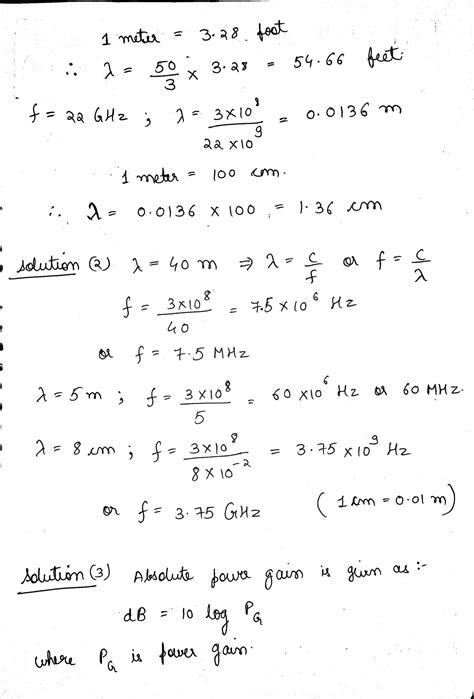 1 meter = 3.28 foot
∴ λ = 50/3 × 3.28 = 54.66 feet
f = 22 GHz ; λ = 3×10⁸/22×10⁹ = 0.0136 m
1 meter = 100 cm.
∴ λ = 0.0136 × 100 = 1.36 cm
Solution (2) λ = 40 m ⇒ λ = c/f or f = c/λ
f = 3×10⁸/40 = 7.5 × 10⁶ Hz
or f = 7.5 MHz
λ = 5 m ; f = 3×10⁸/5 = 60 ×10⁶ Hz or 60 MHz.
λ = 8 cm ; f = 3×10⁸/8×10⁻² = 3.75 ×10⁹ Hz
or f = 3.75 GHz (1 cm = 0.01 m)
Solution (3) Absolute power gain is given as :-
dB = 10 log P_G
where P_G is power gain.